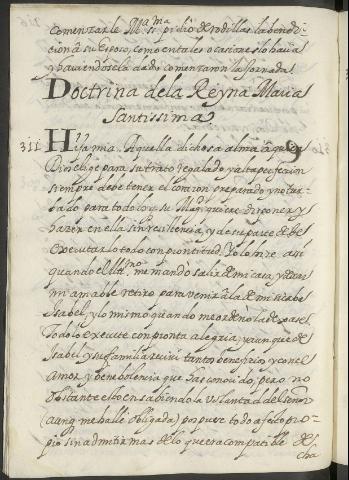 comenzarle Mª ma si. pidio de rodillas la bendi-
cion â su Esposo, como entales ocasiones lo haçia
y haviendosela dado comenzaron la Jornada
Doctrina dela Reyna Maria
Santissima
311 Hija mia. Aquella dichosa alma â quien
Dios elige para su trato regalado y alta perfeccion
siempre debe tener el corazon preparado y no tur-
bado para todo lo q su Magd quiere disponer y
hazer en ella sin resistencia, y de su parte debe
executarlo todo con prontitud. Yo lo hize assi
quando el Altmo me mando salir de mi casa, y dexar
mi amable retiro para venir â la de mi sierba
Isabel, y lo mismo quando me ordenò la dexasse
Todo lo execute con pronta alegria, y aunque de
Isabel y su familia recivi tantos beneficios y con el
amor, y benebolencia que has conocido, pero no
obstante esto en sabiendo la voluntad del Señor
(aunq me hallè obligada) pospuse todo afecto pro-
pio sin admitir mas de lo que era compatible de
cha